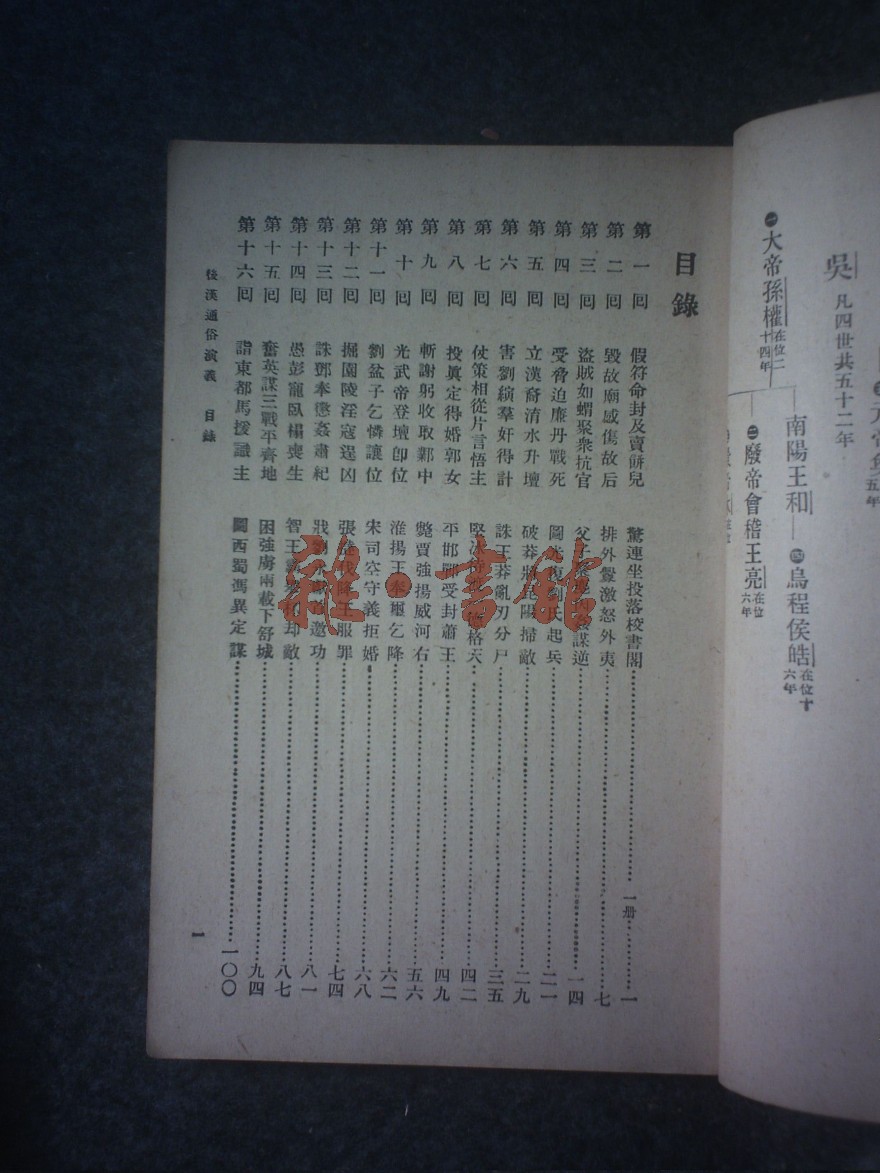 吳 凡四世共五十二年
㊀大帝孫權在位二十四年
南陽王和
㊃烏程侯皓在位十六年
㊁廢帝會稽王亮在位六年
目錄
第一回 假符命封及賣餅兒 驚連坐投落校書閣 一册 一
第二回 毀故廟感傷故后 排外釁激怒外夷 七
第三回 盜賊如蝟聚衆抗官 父子 姦謀逆 一四
第四回 受脅迫廉丹戰死 圖光復劉氏起兵 二一
第五回 立漢裔淯水升壇 破莽將昆陽掃敵 二九
第六回 害劉縯羣奸得計 誅王莽亂刃分尸 三五
第七回 仗策相從片言悟主 堅冰 格天 四二
第八回 投眞定得婚郭女 平邯鄲受封蕭王 四九
第九回 斬謝躬收取鄴中 斃賈強揚威河右 五六
第十回 光武帝登壇卽位 淮揚王奉璽乞降 六二
第十一回 劉盆子乞憐讓位 宋司空守義拒婚 六八
第十二回 掘園陵淫寇逞凶 張 降王服罪 七四
第十三回 誅鄧奉懲姦肅紀 戕劉 邀功 八一
第十四回 愚彭寵臥榻喪生 智王霸 却敵 八七
第十五回 奮英謀三戰平齊地 困強虜兩載下舒城 九四
第十六回 詣東都馬援識主 圖西蜀馮異定謀 一〇〇
後漢通俗演義 目錄
一
雅·書館